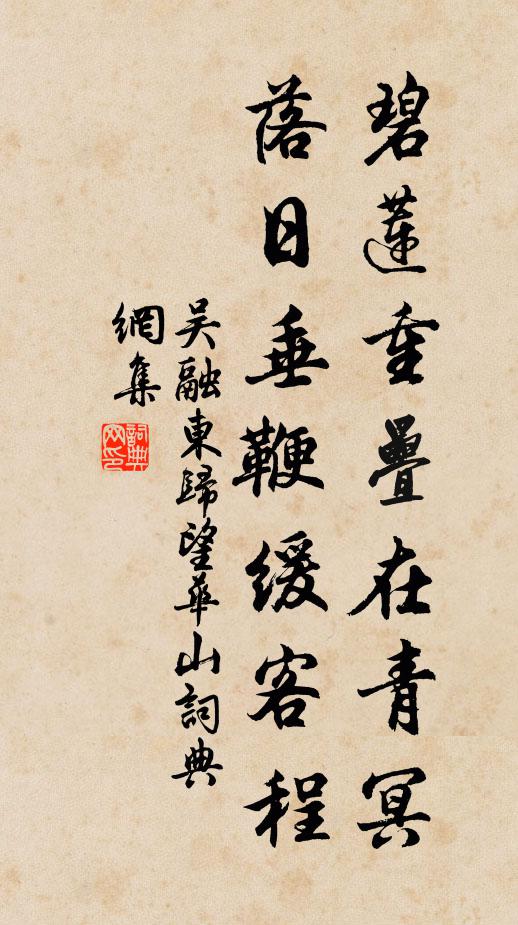 碧蓮重疊在青冥
落日垂鞭緩客程
吴融東歸望華山詞典
網集
詞典
网印